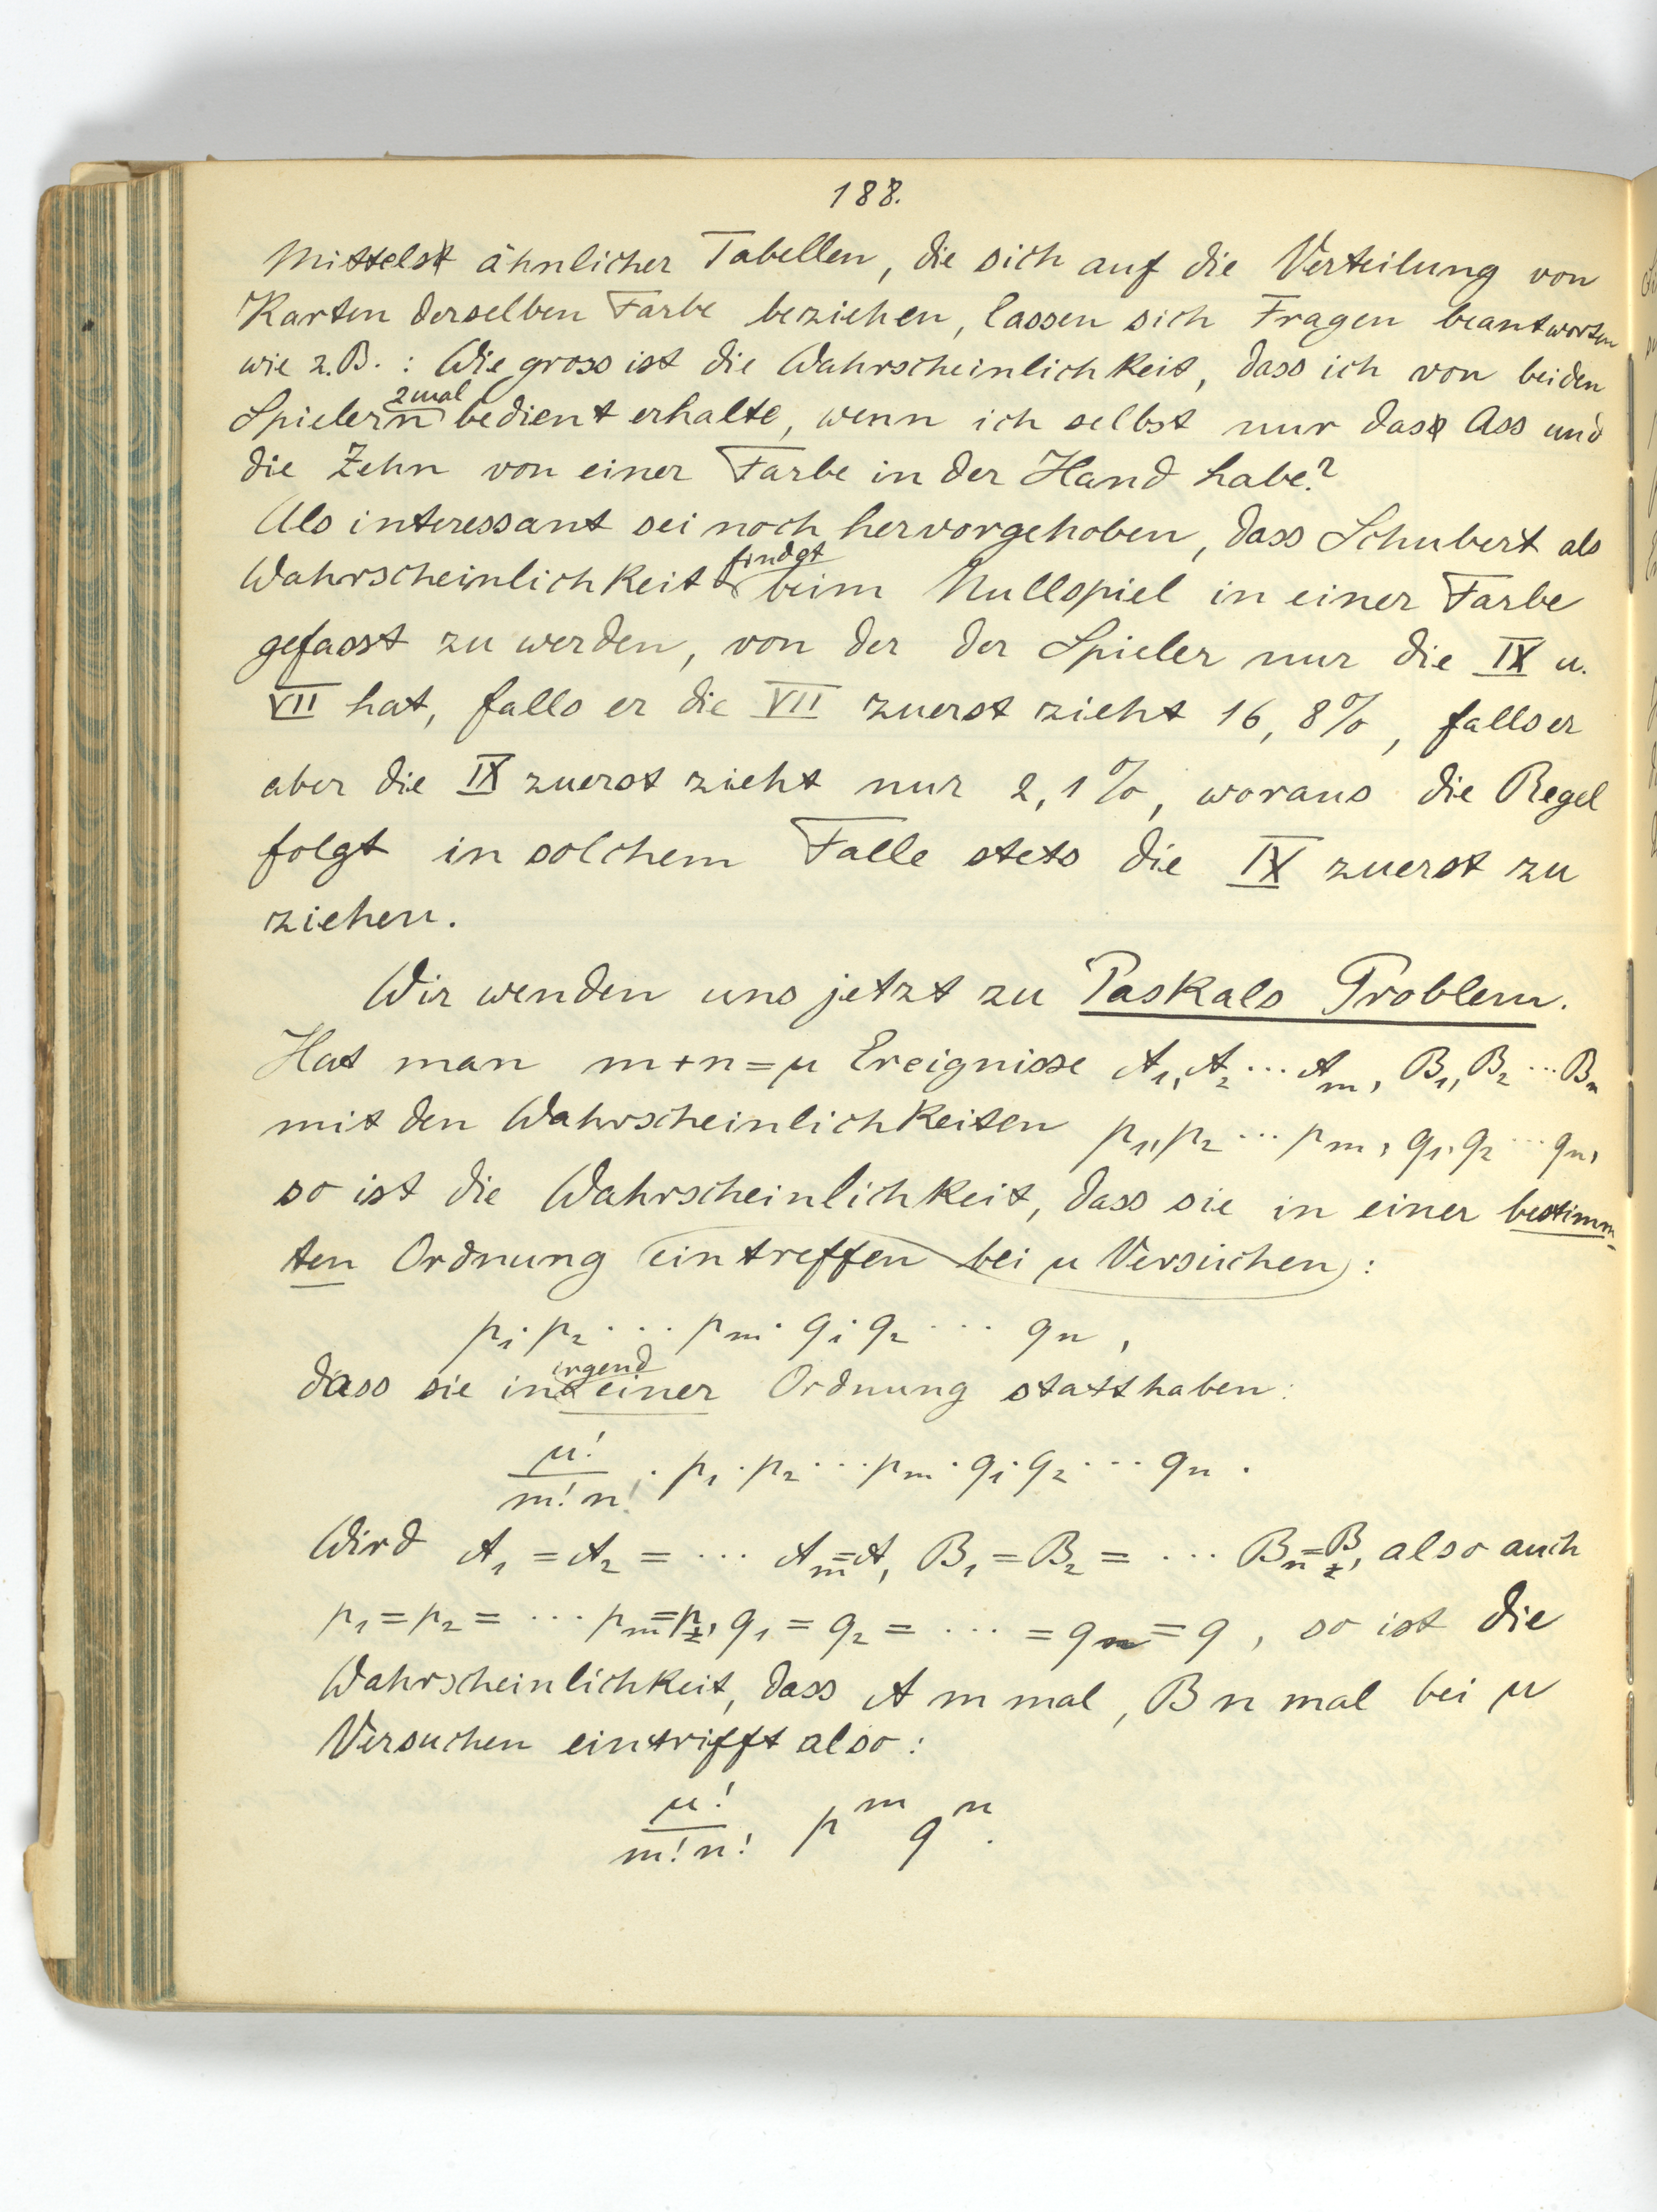 188.
Mittelst ähnlicher Tabellen, die sich auf die Verteilung von
Karten derselben Farbe beziehen, lassen sich Fragen beantworten
wie z.B. : Wie gross ist die Wahrscheinlichkeit, dass ich von beiden
Spielern 2mal bedient erhalte, wenn ich selbst nur das Ass und
die Zehn von einer Farbe in der Hand habe?
Als interessant sei noch hervorgehoben, dass Schubert als
Wahrscheinlichkeit findet beim Nullspiel in einer Farbe
gefasst zu werden, von der der Spieler nur die IX u.
VII hat, falls er die VII zuerst zieht 16,8%, falls er
aber die IX zuerst zieht nur 2,1%, woraus die Regel
folgt in solchem Falle stets die IX zuerst zu
ziehen.
Wir wenden uns jetzt zu Paskals Problem.
Hat man m+n=μ Ereignisse A₁, A₂ ... Aₘ, B₁, B₂ ... Bₙ
mit den Wahrscheinlichkeiten p₁, p₂ ... pₘ, q₁, q₂ ... qₙ,
so ist die Wahrscheinlichkeit, dass sie in einer bestimm-
ten Ordnung eintreffen bei μ Versuchen :
p₁· p₂ ... pₘ· q₁· q₂ ... qₙ ,
dass sie in irgend einer Ordnung statthaben:
μ!/m!n! · p₁ · p₂ ... pₘ · q₁· q₂ ... qₙ .
Wird A₁ = A₂ = ... Aₘ=A, B₁ = B₂ = ... Bₙ=B, also auch
p₁ = p₂ = ... pₘ=p, q₁ = q₂ = ... = qₙ = q , so ist die
Wahrscheinlichkeit, dass A m mal, B n mal bei μ
Versuchen eintrifft also :
μ!/m!n! pᵐ qⁿ.